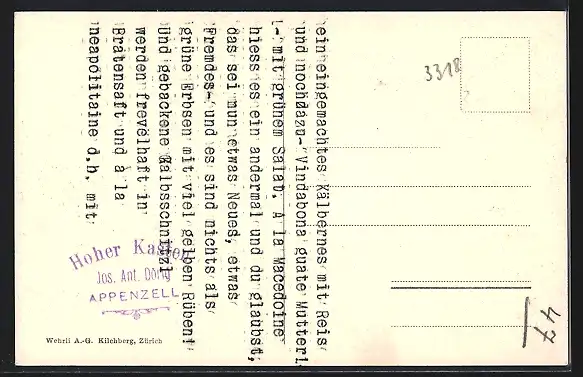 ein eingemachtes Kälbernes mit Reis
und nochdazu- Vindabona guate Mutterl
- mit grünem Salat. A la Macedoine
hiess es ein andermal und du glaubst,
das sei nun etwas Neues, etwas
Fremdes- und es sind nichts als
grüne Erbsen mit viel gelben Rüben!
Und gebackene Kalbsschnitzl
werden frevelhaft in
Bratensaft und à la
neapolitaine d.h. mit
3318
Hoher Kasten
Jos. Ant. Dörig
APPENZELL
Wehrli A.-G. Kilchberg, Zürich
47